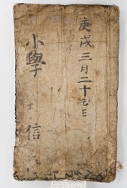 庚戌三月二十五日
小學
信